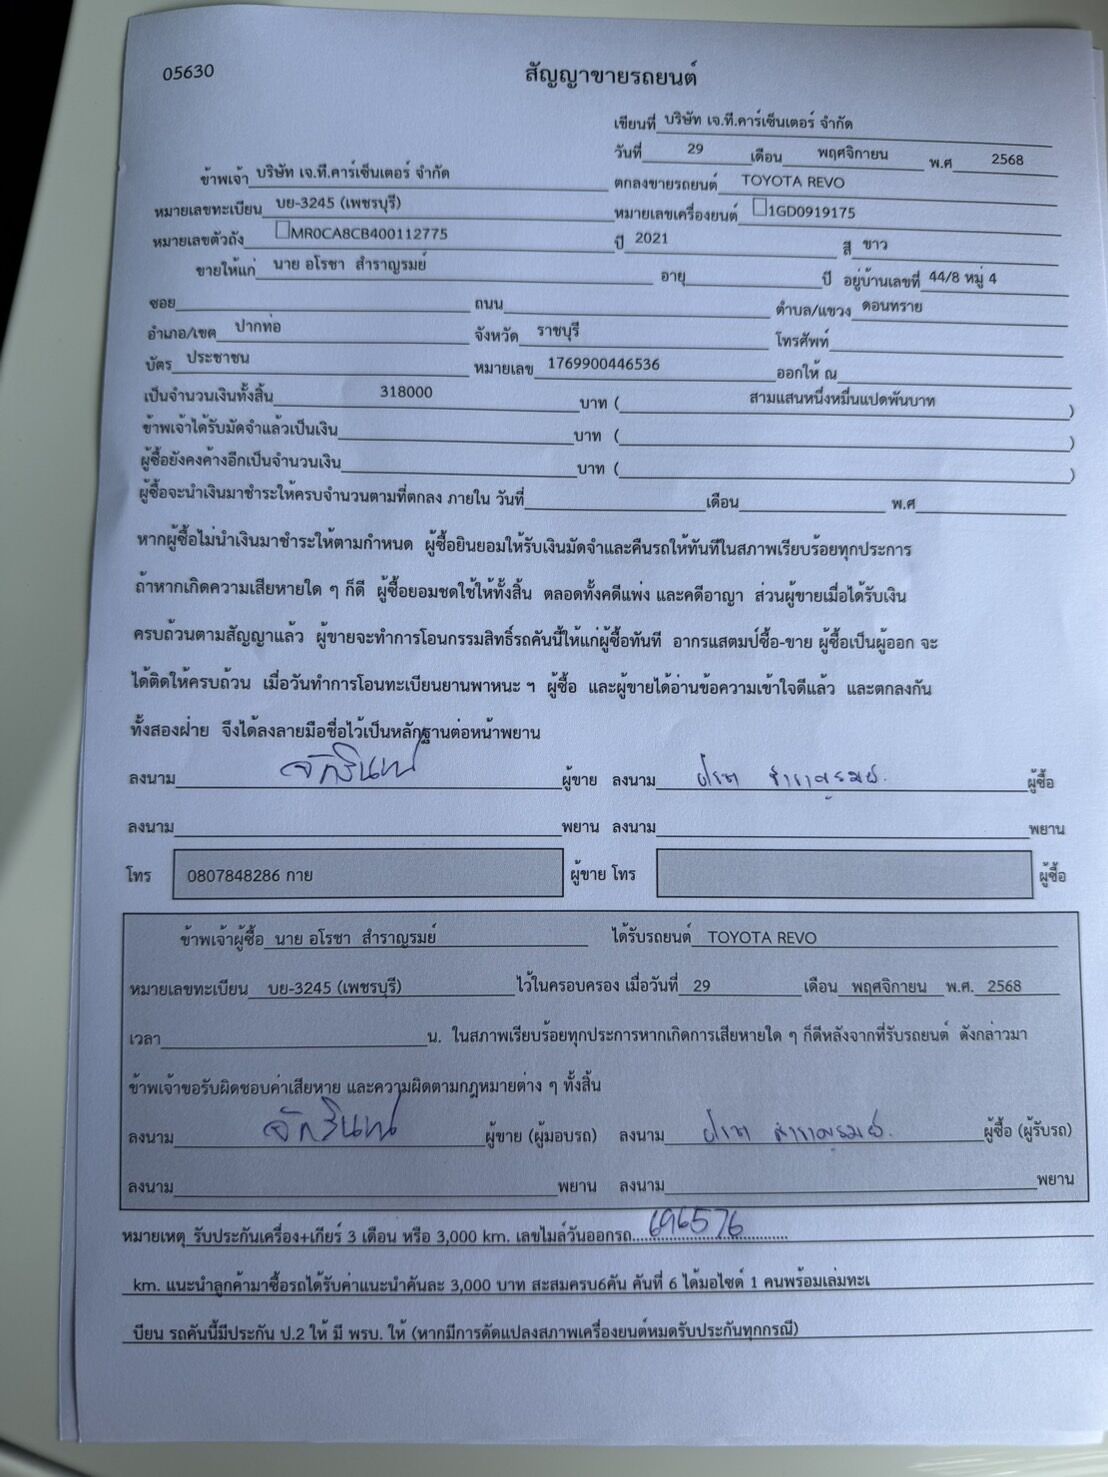 05630
สัญญาขายรถยนต์
เขียนที่ บริษัท เจ.ที.คาร์เซ็นเตอร์ จำกัด
วันที่ 29 เดือน พฤศจิกายน พ.ศ 2568
ข้าพเจ้า บริษัท เจ.ที.คาร์เซ็นเตอร์ จำกัด ตกลงขายรถยนต์ TOYOTA REVO
หมายเลขทะเบียน บย-3245 (เพชรบุรี) หมายเลขเครื่องยนต์ □1GD0919175
หมายเลขตัวถัง □MR0CA8CB400112775 ปี 2021 สี ขาว
ขายให้แก่ นาย อโรชา สำราญรมย์ อายุ ปี อยู่บ้านเลขที่ 44/8 หมู่ 4
ซอย ถนน ตำบล/แขวง ดอนทราย
อำเภอ/เขต ปากท่อ จังหวัด ราชบุรี โทรศัพท์
บัตร ประชาชน หมายเลข 1769900446536 ออกให้ ณ
เป็นจำนวนเงินทั้งสิ้น 318000 บาท ( สามแสนหนึ่งหมื่นแปดพันบาท )
ข้าพเจ้าได้รับมัดจำแล้วเป็นเงิน บาท ( )
ผู้ซื้อยังคงค้างอีกเป็นจำนวนเงิน บาท ( )
ผู้ซื้อจะนำเงินมาชำระให้ครบจำนวนตามที่ตกลง ภายใน วันที่ เดือน พ.ศ
หากผู้ซื้อไม่นำเงินมาชำระให้ตามกำหนด ผู้ซื้อยินยอมให้รับเงินมัดจำและคืนรถให้ทันทีในสภาพเรียบร้อยทุกประการ
ถ้าหากเกิดความเสียหายใด ๆ ก็ดี ผู้ซื้อยอมชดใช้ให้ทั้งสิ้น ตลอดทั้งคดีแพ่ง และคดีอาญา ส่วนผู้ขายเมื่อได้รับเงิน
ครบถ้วนตามสัญญาแล้ว ผู้ขายจะทำการโอนกรรมสิทธิ์รถคันนี้ให้แก่ผู้ซื้อทันที อากรแสตมป์ซื้อ-ขาย ผู้ซื้อเป็นผู้ออก จะ
ได้ติดให้ครบถ้วน เมื่อวันทำการโอนทะเบียนยานพาหนะ ฯ ผู้ซื้อ และผู้ขายได้อ่านข้อความเข้าใจดีแล้ว และตกลงกัน
ทั้งสองฝ่าย จึงได้ลงลายมือชื่อไว้เป็นหลักฐานต่อหน้าพยาน
ลงนาม จักรินทร์ ผู้ขาย ลงนาม สำราญรมย์ ผู้ซื้อ
ลงนาม พยาน ลงนาม พยาน
โทร 0807848286 กาย ผู้ขาย โทร ผู้ซื้อ
ข้าพเจ้าผู้ซื้อ นาย อโรชา สำราญรมย์ ได้รับรถยนต์ TOYOTA REVO
หมายเลขทะเบียน บย-3245 (เพชรบุรี) ไว้ในครอบครอง เมื่อวันที่ 29 เดือน พฤศจิกายน พ.ศ. 2568
เวลา น. ในสภาพเรียบร้อยทุกประการหากเกิดการเสียหายใด ๆ ก็ดีหลังจากที่รับรถยนต์ ดังกล่าวมา
ข้าพเจ้าขอรับผิดชอบค่าเสียหาย และความผิดตามกฎหมายต่าง ๆ ทั้งสิ้น
ลงนาม จักรินทร์ ผู้ขาย (ผู้มอบรถ) ลงนาม สำราญรมย์ ผู้ซื้อ (ผู้รับรถ)
ลงนาม พยาน ลงนาม พยาน
หมายเหตุ รับประกันเครื่อง+เกียร์ 3 เดือน หรือ 3,000 km. เลขไมล์วันออกรถ..........
km. แนะนำลูกค้ามาซื้อรถได้รับค่าแนะนำคันละ 3,000 บาท สะสมครบ6คัน คันที่ 6 ได้มอไซด์ 1 คนพร้อมเล่มทะเ
บียน รถคันนี้มีประกัน ป.2 ให้ มี พรบ. ให้ (หากมีการดัดแปลงสภาพเครื่องยนต์หมดรับประกันทุกกรณี)